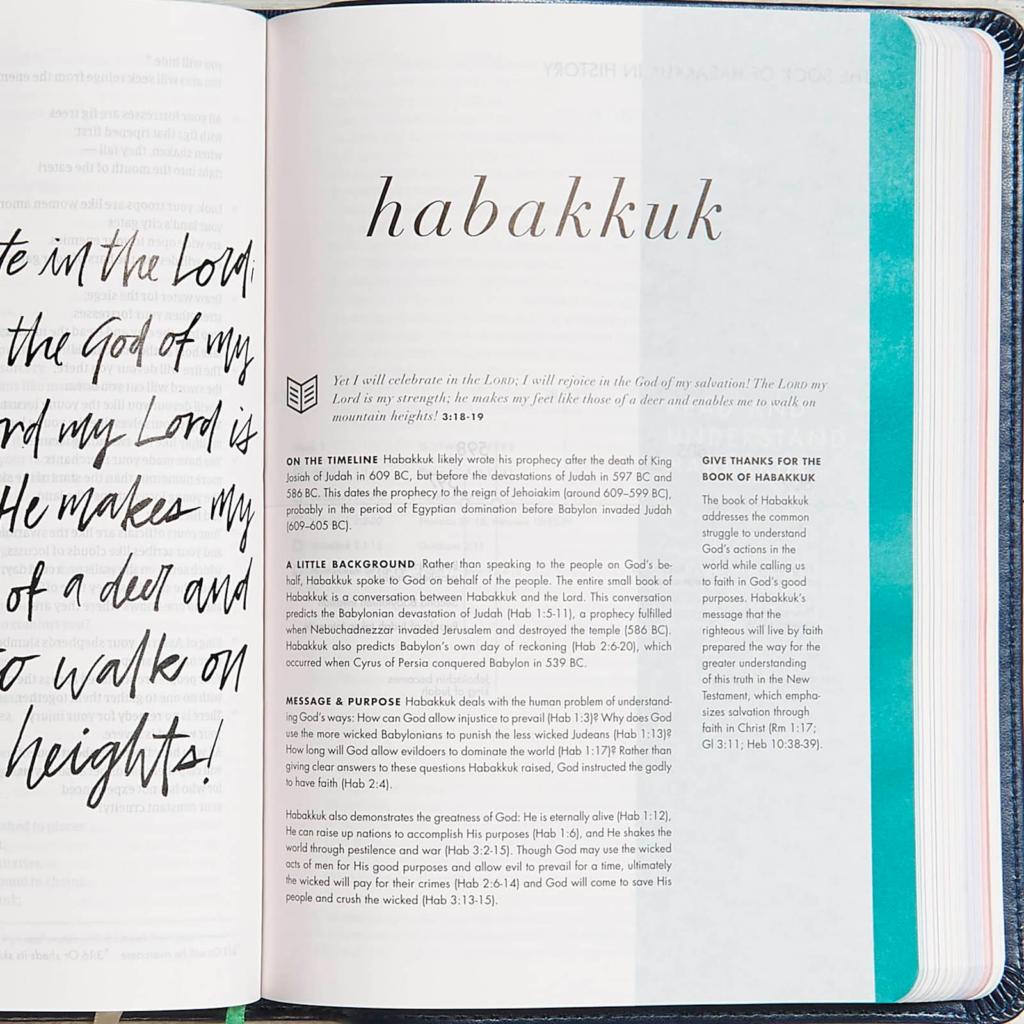 in the Lord;
the God of my
my Lord is
He makes my
of a deer and
walk on
heights!
habakkuk
Yet I will celebrate in the LORD; I will rejoice in the God of my salvation! The LORD my
Lord is my strength; he makes my feet like those of a deer and enables me to walk on
mountain heights! 3:18-19
ON THE TIMELINE Habakkuk likely wrote his prophecy after the death of King
Josiah of Judah in 609 BC, but before the devastations of Judah in 597 BC and
586 BC. This dates the prophecy to the reign of Jehoiakim (around 609–599 BC),
probably in the period of Egyptian domination before Babylon invaded Judah
(609–605 BC).
A LITTLE BACKGROUND Rather than speaking to the people on God's be-
half, Habakkuk spoke to God on behalf of the people. The entire small book of
Habakkuk is a conversation between Habakkuk and the Lord. This conversation
predicts the Babylonian devastation of Judah (Hab 1:5-11), a prophecy fulfilled
when Nebuchadnezzar invaded Jerusalem and destroyed the temple (586 BC).
Habakkuk also predicts Babylon's own day of reckoning (Hab 2:6-20), which
occurred when Cyrus of Persia conquered Babylon in 539 BC.
MESSAGE & PURPOSE Habakkuk deals with the human problem of understand-
ing God's ways: How can God allow injustice to prevail (Hab 1:3)? Why does God
use the more wicked Babylonians to punish the less wicked Judeans (Hab 1:13)?
How long will God allow evildoers to dominate the world (Hab 1:17)? Rather than
giving clear answers to these questions Habakkuk raised, God instructed the godly
to have faith (Hab 2:4).
Habakkuk also demonstrates the greatness of God: He is eternally alive (Hab 1:12),
He can raise up nations to accomplish His purposes (Hab 1:6), and He shakes the
world through pestilence and war (Hab 3:2-15). Though God may use the wicked
acts of men for His good purposes and allow evil to prevail for a time, ultimately
the wicked will pay for their crimes (Hab 2:6-14) and God will come to save His
people and crush the wicked (Hab 3:13-15).
GIVE THANKS FOR THE
BOOK OF HABAKKUK
The book of Habakkuk
addresses the common
struggle to understand
God's actions in the
world while calling us
to faith in God's good
purposes. Habakkuk's
message that the
righteous will live by faith
prepared the way for the
greater understanding
of this truth in the New
Testament, which empha-
sizes salvation through
faith in Christ (Rm 1:17;
Gl 3:11; Heb 10:38-39).